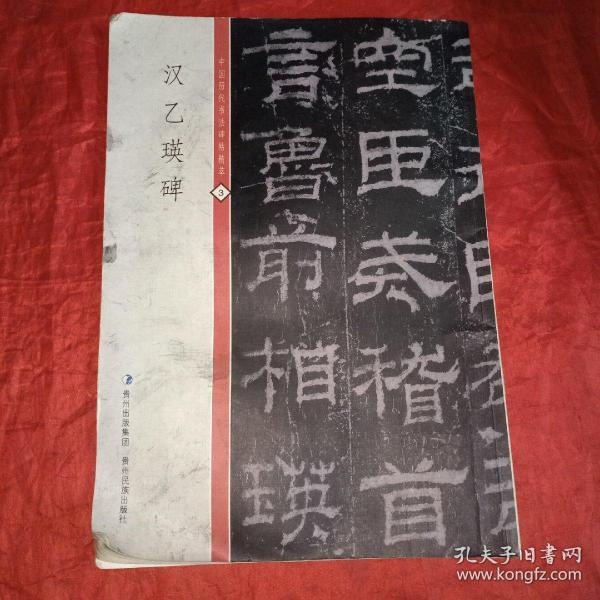 汉乙瑛碑
中国历代书法碑帖精萃
3
贵州出版集团 贵州民族出版社
空臣羌稽首
言鲁前相瑛
孔夫子旧书网
www.kongfz.com